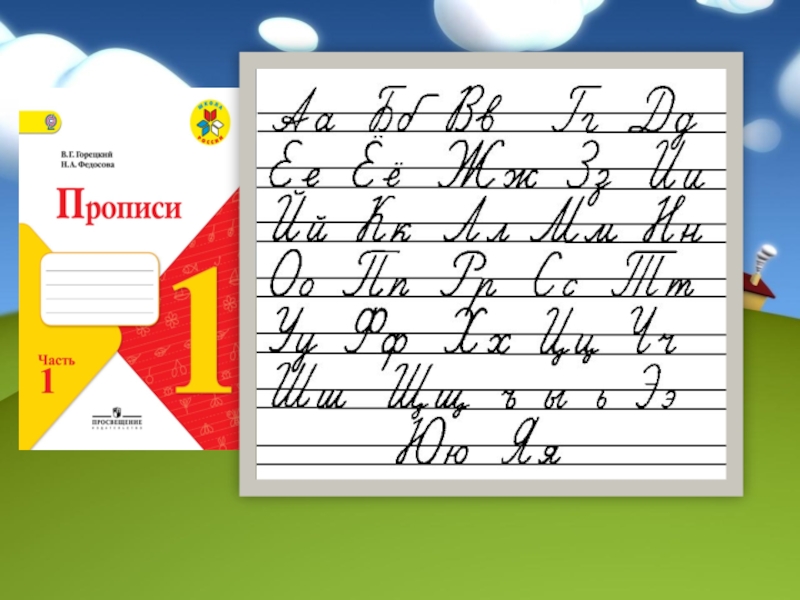 ШКОЛА РОССИИ
В.Г. Горецкий
Н.А. Федосова
Прописи
1
Часть
1
ПРОСВЕЩЕНИЕ
ИЗДАТЕЛЬСТВО
Аа Бб Вв Гг Дд
Ее Ёё Жж Зз Ии
Йй Кк Лл Мм Нн
Оо Пп Рр Сс Тт
Уу Фф Хх Цц Чч
Шш Щщ ъ ы ь Ээ
Юю Яя